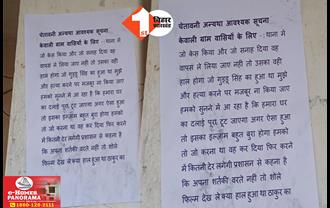 चेतावनी अन्यथा आवश्यक सूचना
केवाली ग्राम वासियों के लिए :- थाना में
जो केस किया और जो सनाह दिया वह
वापस ले लिया जाए नहीं तो उसका वही
हाल होगा जो गुड्डू सिंह का हुआ था मुझे
और हत्या करने पर मजबूर ना किया जाए
हमको सुनने में आ रहा है कि हमारा घर
का ढलाई पूरा टूट जाएगा अगर ऐसा हुआ
तो इसका इन्जाम बहुत बुरा होगा हमको
तो जो करना था वह कर दिया फिर करने
में कितनी देर लगेगी प्रशासन से कहना है
कि अपना शर्तकी वरते नहीं तो शोले
फिल्म देख ले क्या हाल हुआ था ठाकुर का
चेतावनी अन्यथा आवश्यक सूचना
केवाली ग्राम वासियों के लिए :- थाना में
जो केस किया और जो सनाह दिया वह
वापस ले लिया जाए नहीं तो उसका वही
हाल होगा जो गुड्डू सिंह का हुआ था मुझे
और हत्या करने पर मजबूर ना किया जाए
हमको सुनने में आ रहा है कि हमारा घर
का ढलाई पूरा टूट जाएगा अगर ऐसा हुआ
तो इसका इन्जाम बहुत बुरा होगा हमको
तो जो करना था वह कर दिया फिर करने
में कितनी देर लगेगी प्रशासन से कहना है
कि अपना शर्तकी वरते नहीं तो शोले
फिल्म देख ले क्या हाल हुआ था ठाकुर का
1st
बिहार
झारखंड
e-Homes
PANORAMA
1800-120-2111